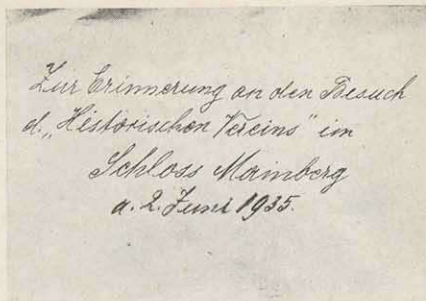 Zur Erinnerung an den Besuch
d. „Historischen Vereins" im
Schloss Mainberg
a. 2. Juni 1935.